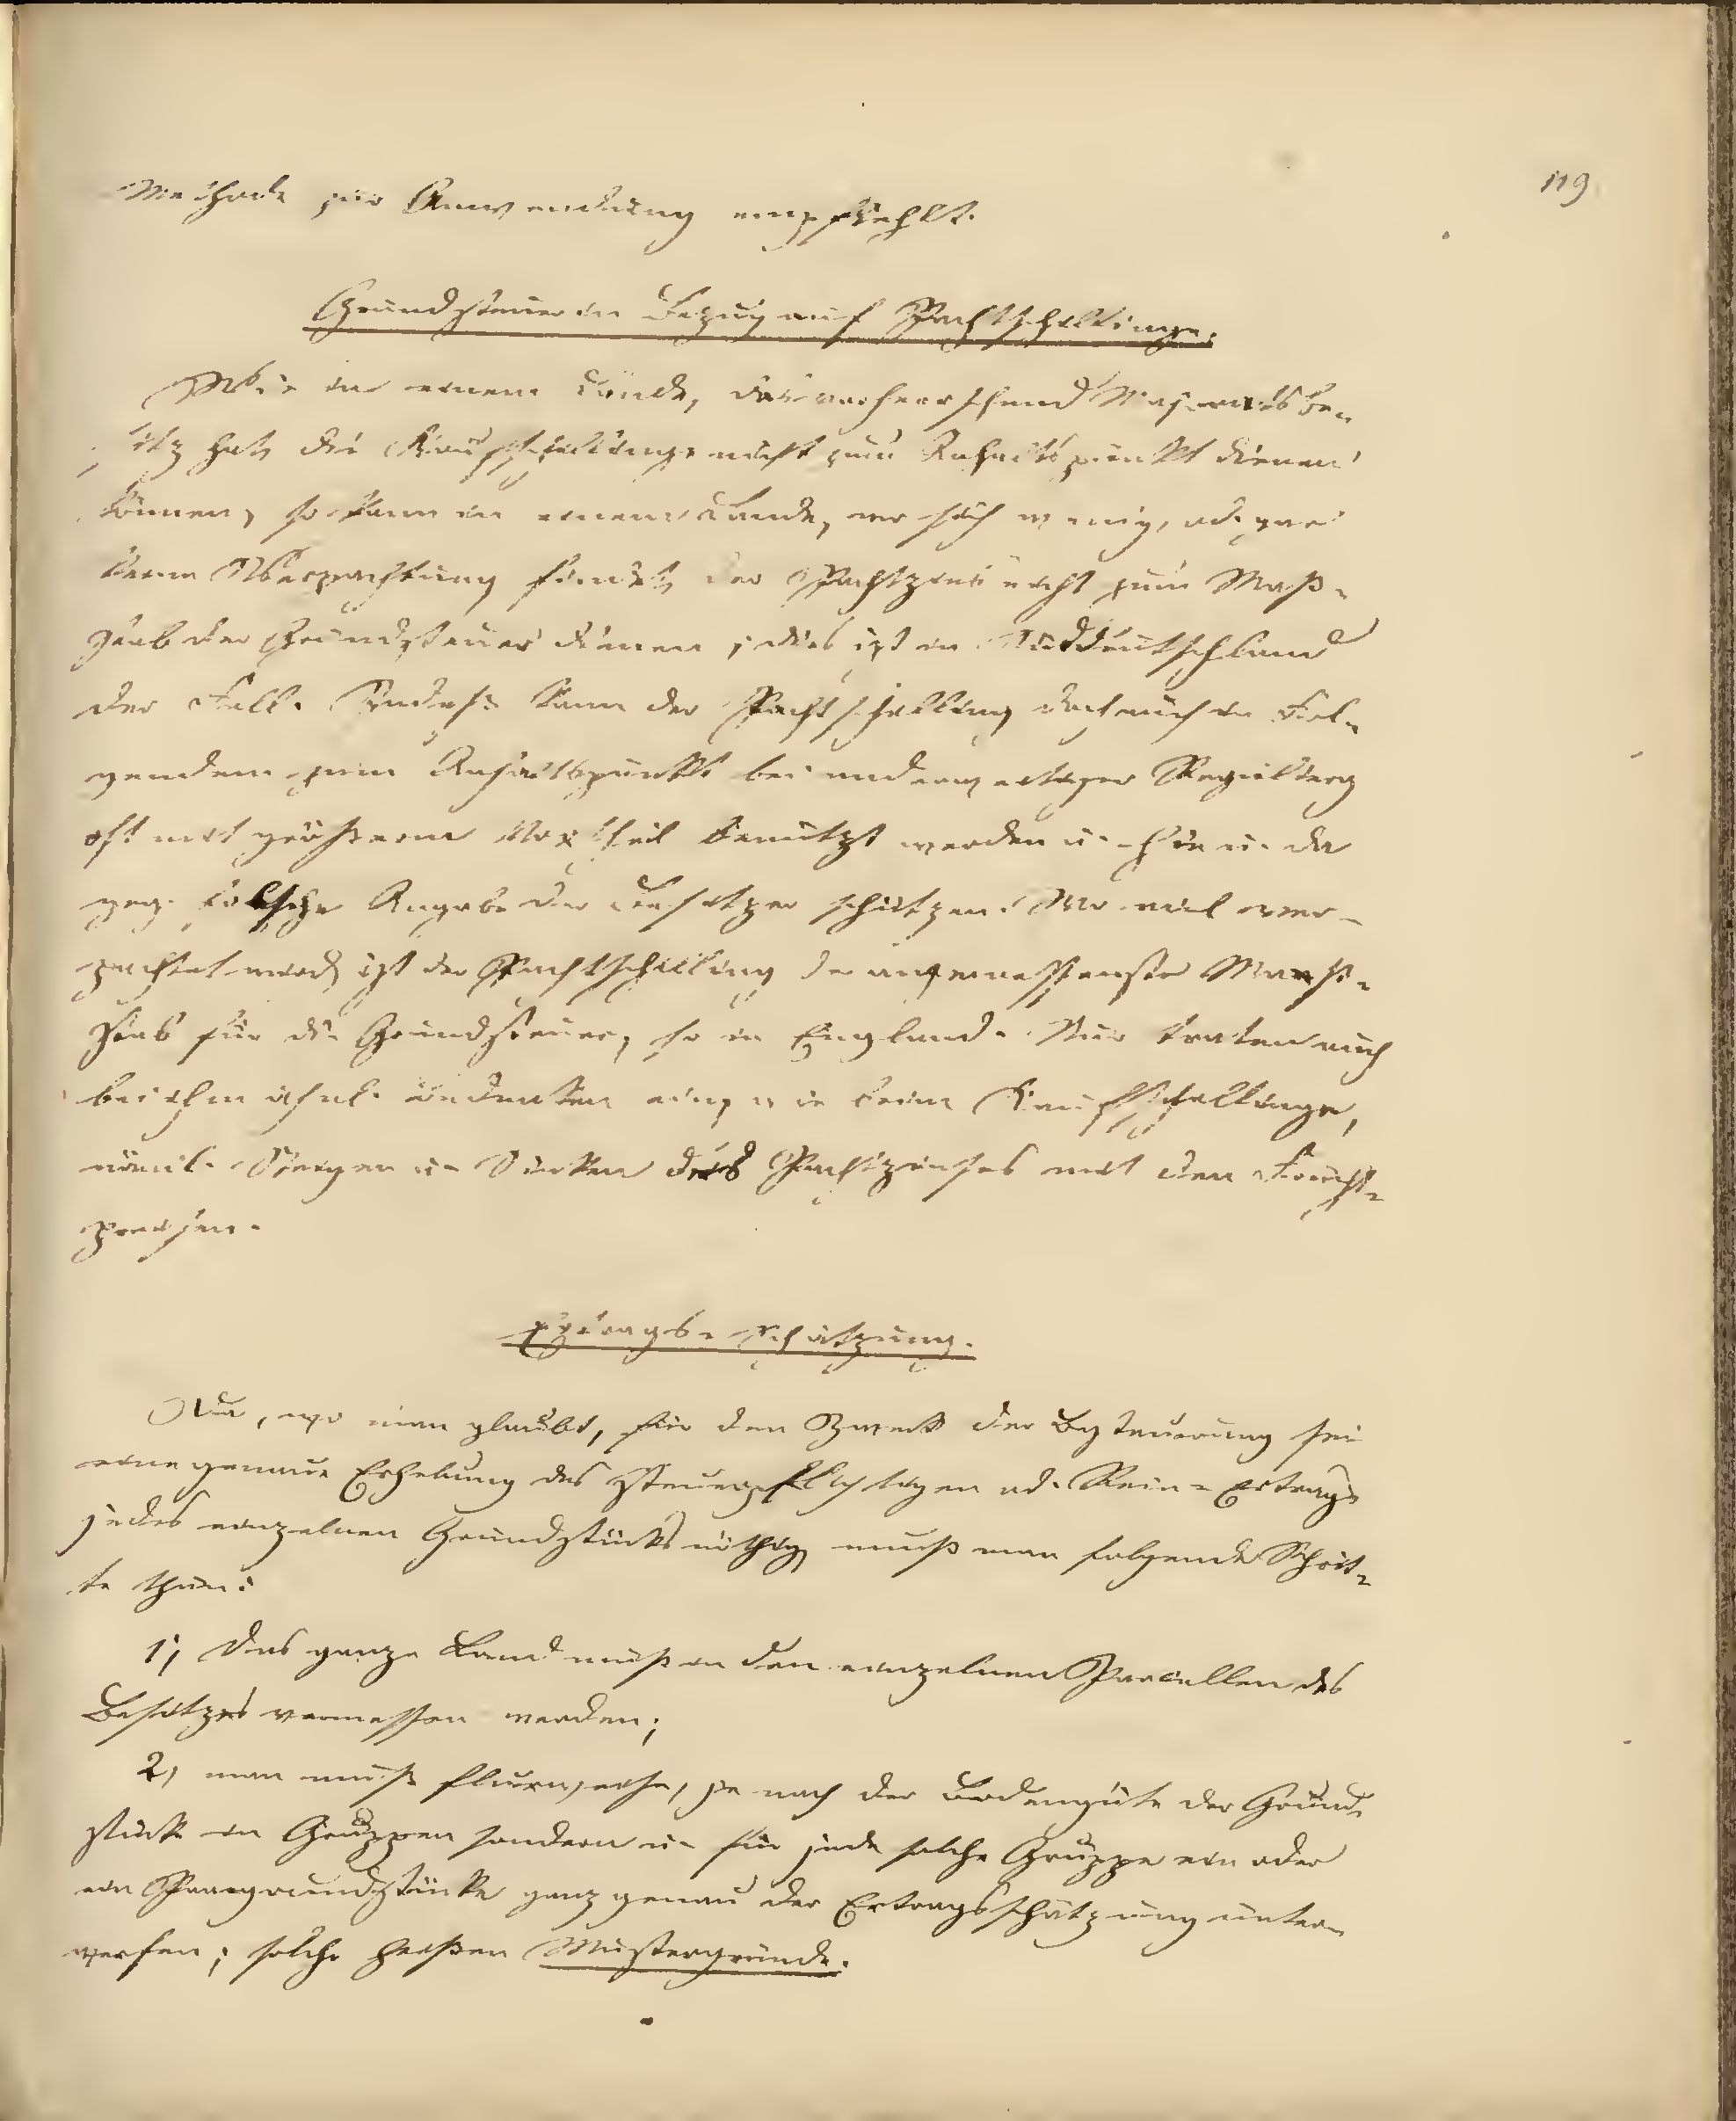 119.
Methode zur Anwendung empfiehlt.
Grundsteuer in Bezug auf Pachtschillinge.
Wie in einem Lande, das vorherrschend Majoratsbe-
sitz hat, die Kaufschillinge nicht zum Anhaltspunkt dienen
können, so kann in einem Lande, wo sich wenig, od. gar
keine Verpachtung findet, der Pachtzins nicht zum Maß-
stab der Grundsteuer dienen; dies ist in Süddeutschland
der Fall. Indeß kann der Pachtschilling doch auch in Fol-
gendem zum Anhaltspunkte bei anderweitiger Regulierung
oft mit größerm Vortheil benützt werden u. hie u. da
geg. falsche Angabe der Besitzer schützen. Wo viel ver-
pachtet wird, ist der Pachtschilling der angemessenste Maaß-
stab für die Grundsteuer, so in England. Nur treten auch
bei ihm ähnl. Bedenken ein, wie beim Kaufschillinge,
nämil. Steigen u. Sinken des Pachtzinses mit den Frucht-
preisen.
Ertrags-Schätzung.
Da, wo man glaubt, für den Zweck der Besteuerung sei
eine genaue Erhebung des steuerpflichtigen od. Rein-Ertrags
jedes einzelnen Grundstücks nöthig, muß man folgende Schrit-
te thun:
1, Das ganze Land muß in den einzelnen Parcellen des
Besitzes vermessen werden;
2, man muß flurweise, je nach der Bodengüte der Grund-
stücke in Gruppen sondern u. für jede solche Gruppe ein oder
ein Paar Grundstücke ganz genau der Ertragsschätzung unter-
werfen; solche heißen Mustergründe.